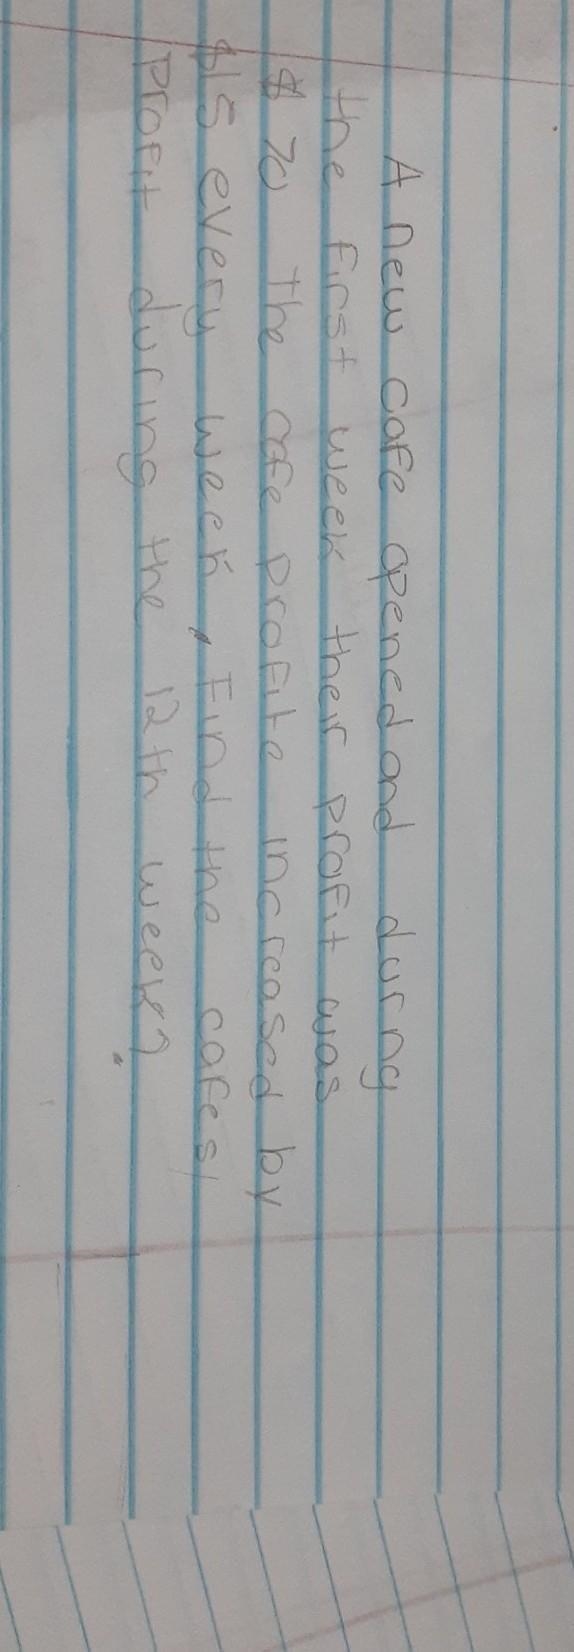 A new cafe opened and durng
the first week their profit was
$ 70 the cafe profite increased by
$15 every week. Find the cafes'
profit during the 12th week?